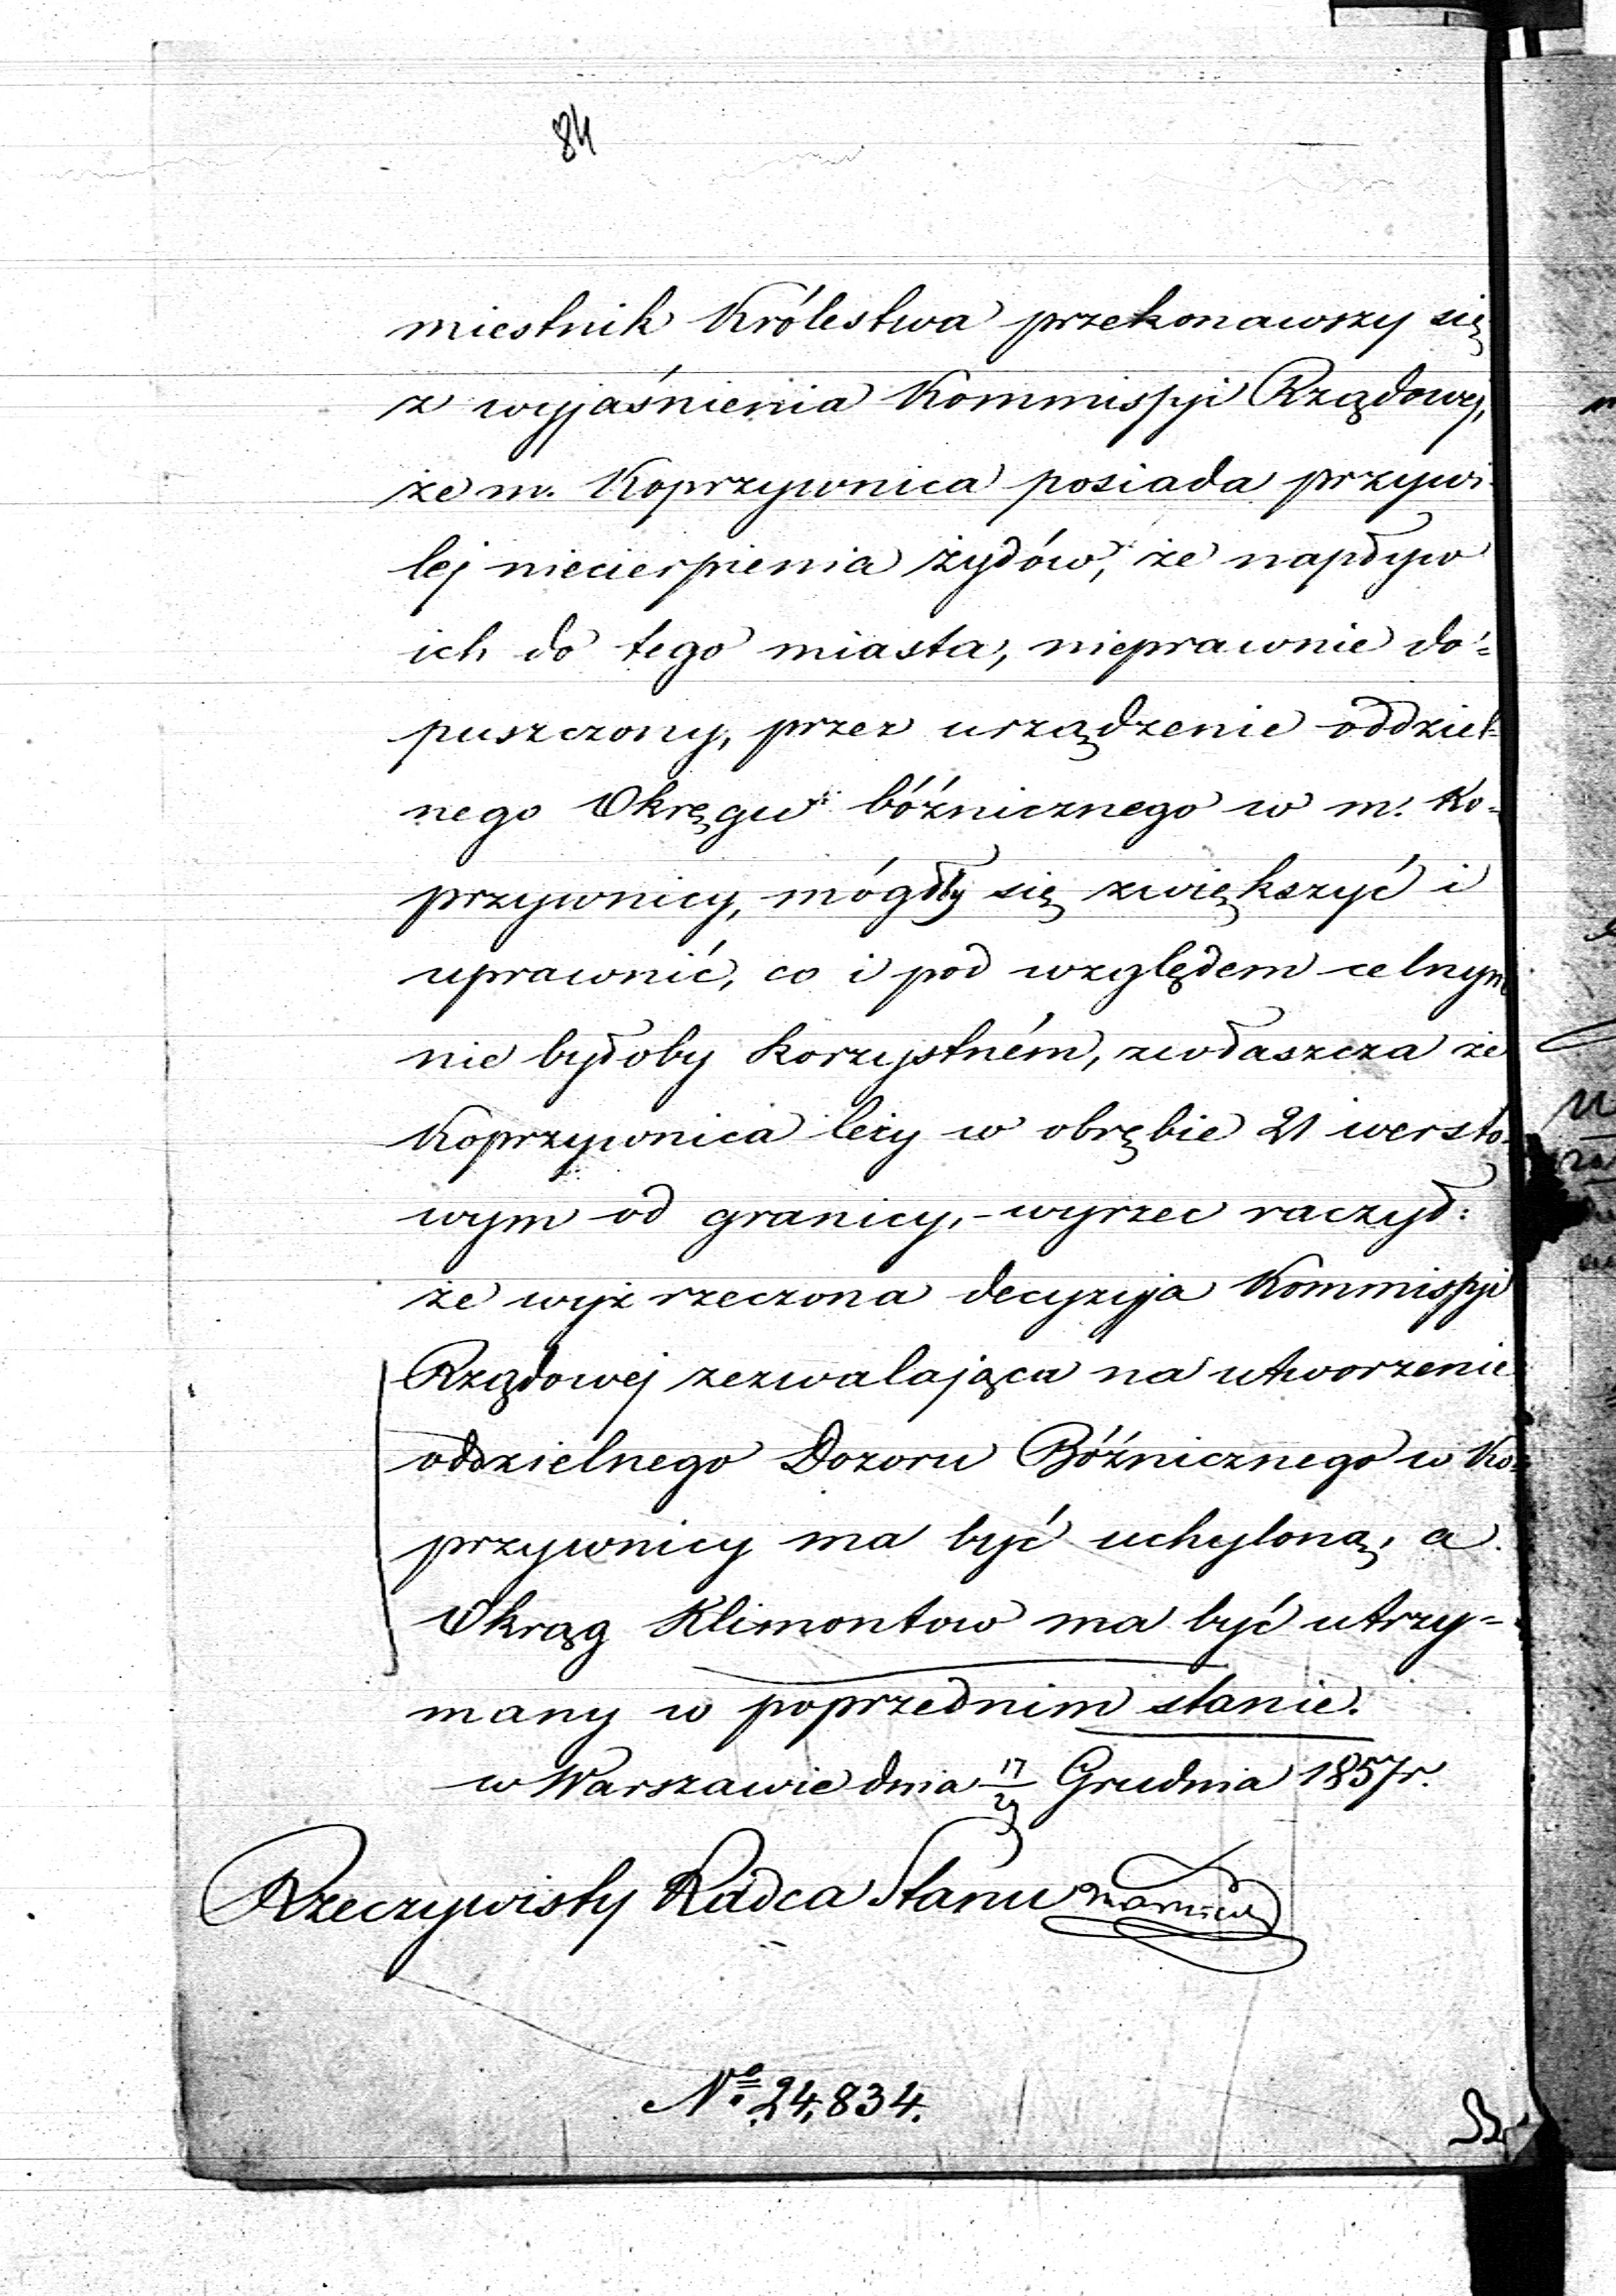 84
miestnik Królestwa przekonawszy się
z wyjaśnienia Kommissyi Rządowej,
że m. Koprzywnica posiada przywi-
lej niecierpienia żydów, że napływ
ich do tego miasta, nieprawnie do=
puszczony, przez urządzenie oddziel=
nego Okręgu bóżnicznego w m. Ko=
przywnicy, mógłby się zwiększyć i
uprawnić, co i pod względem celnym
nie byłoby korzystném, zwłaszcza że
Koprzywnica leży w obrębie 21 wersto-
wym od granicy, - wyrzec raczył:
że wyż rzeczona decyzyja Kommissyi
Rządowej zezwalająca na utworzenie
oddzielnego Dozoru Bóżnicznego w Ko=
przywnicy ma być uchyloną, a
Okrąg Klimontow ma być utrzy=
many w poprzednim stanie.
w Warszawie dnia 17/29 Grudnia 1857 r.
Rzeczywisty Radca Stanu
No. 24,834.